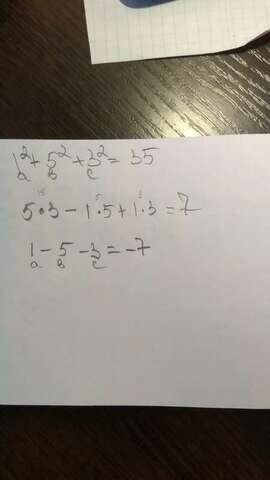 1² + 5² + 3² = 35
a b c
5·3 - 1·5 + 1·3 = 7
1 - 5 - 3 = -7
a b c